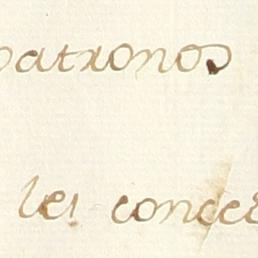 patronos
lei conce